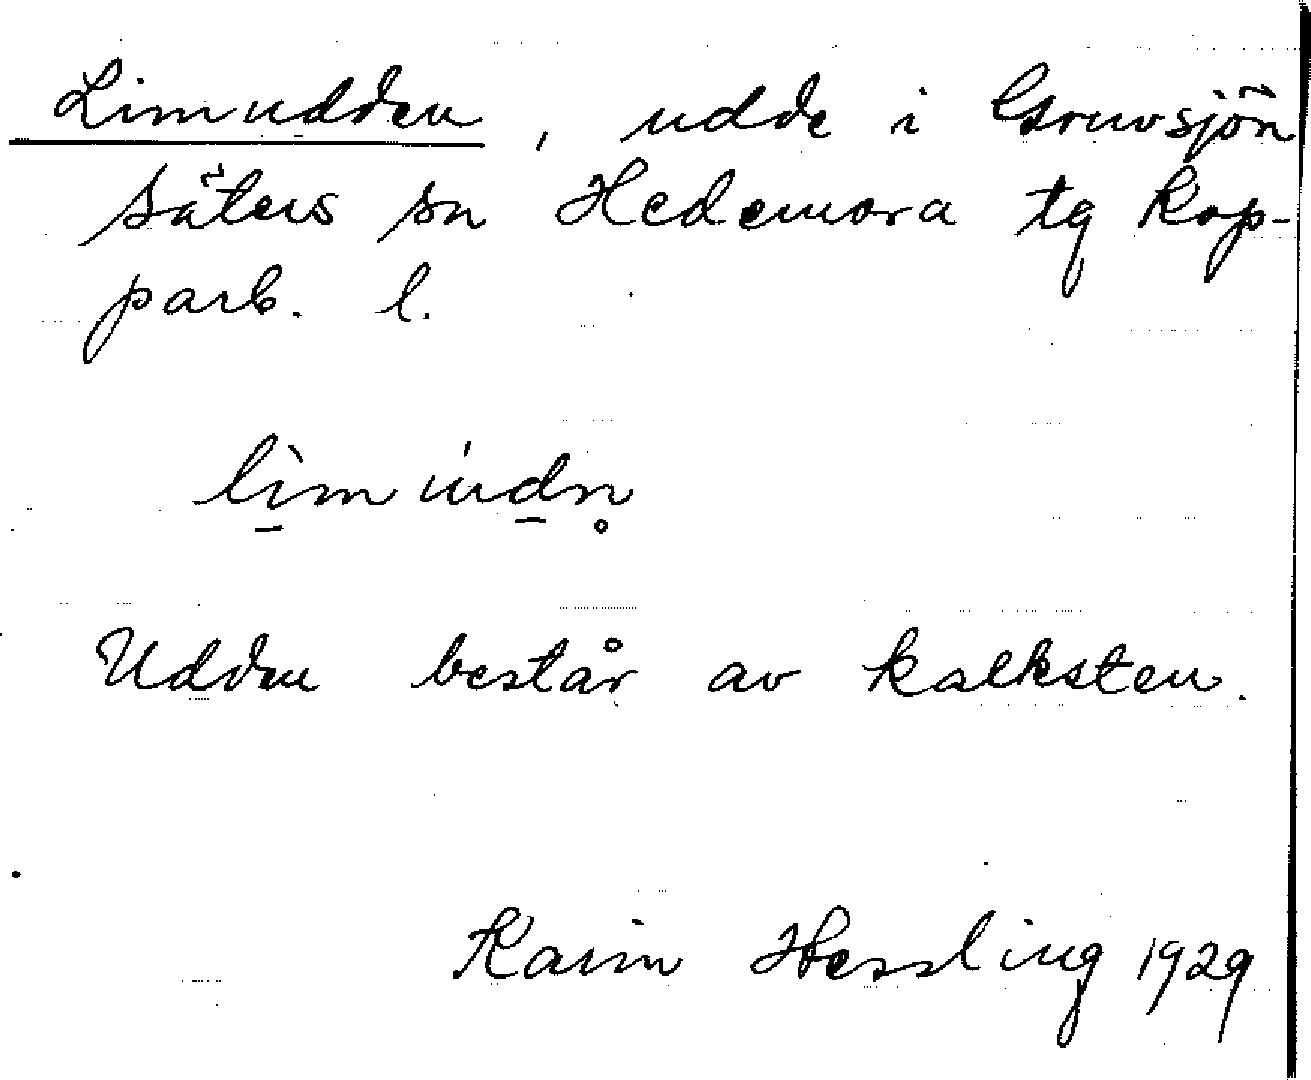 Limudden, udde i Gruvsjön
Säters sn Hedemora tg Kop-
parb. l.
li̠m ùd̠n̥
Udden består av kalksten.
Karin Hessling 1929